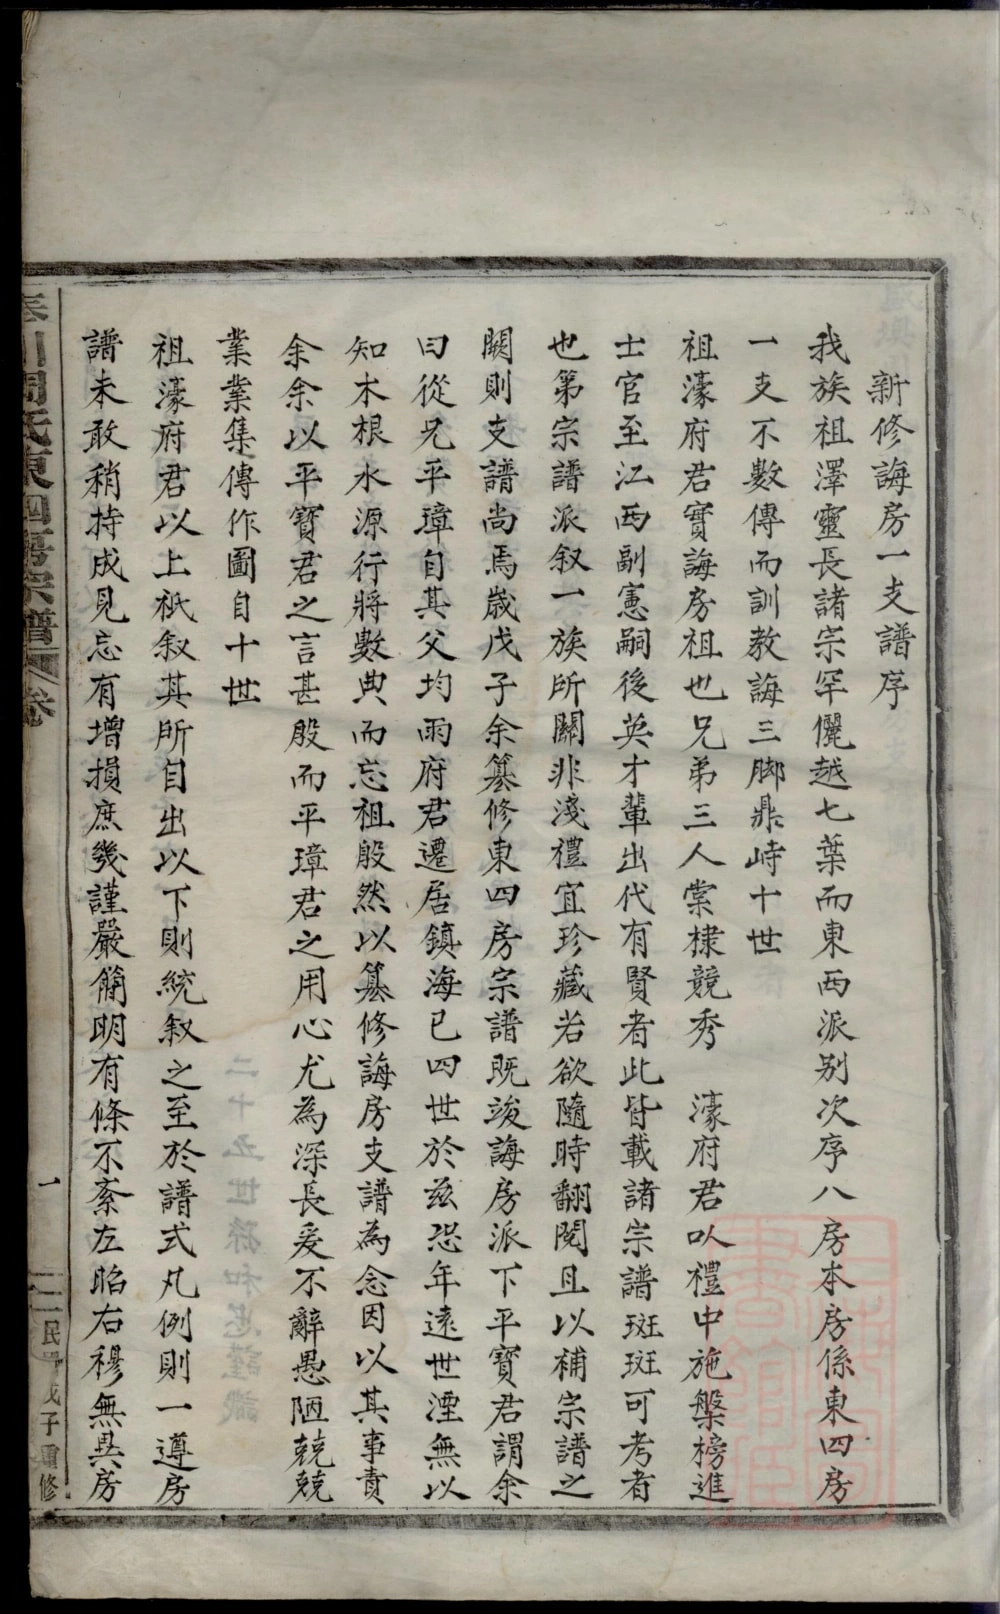 新修誨房一支譜序
我族祖澤靈長諸宗罕儷越七葉而東西派别次序八房本房係東四房
一支不數傳而訓教誨三脚鼎峙十世
祖濠府君實誨房祖也兄弟三人棠棣競秀　濠府君以禮中施槃榜進
士官至江西副憲嗣後英才輩出代有賢者此皆載諸宗譜斑斑可考者
也第宗譜派叙一族所關非淺禮宜珍藏若欲隨時翻閱且以補宗譜之
闕則支譜尚焉歲戊子余纂修東四房宗譜既竣誨房派下平寶君謂余
曰從兄平璋自其父均雨府君遷居鎮海已四世於兹恐年遠世湮無以
知木根水源行將數典而忘祖殷然以纂修誨房支譜為念因以其事責
余余以平寶君之言甚殷而平璋君之用心尤為深長爰不辭愚陋兢兢
業業集傳作圖自十世
祖濠府君以上祇叙其所自出以下則統叙之至於譜式凡例則一遵房
譜未敢稍持成見忘有增損庶幾謹嚴簡明有條不紊左昭右穆無異房
川周氏東四房宗譜　卷　一　民國戊子重修
二十五世孫和忠謹識